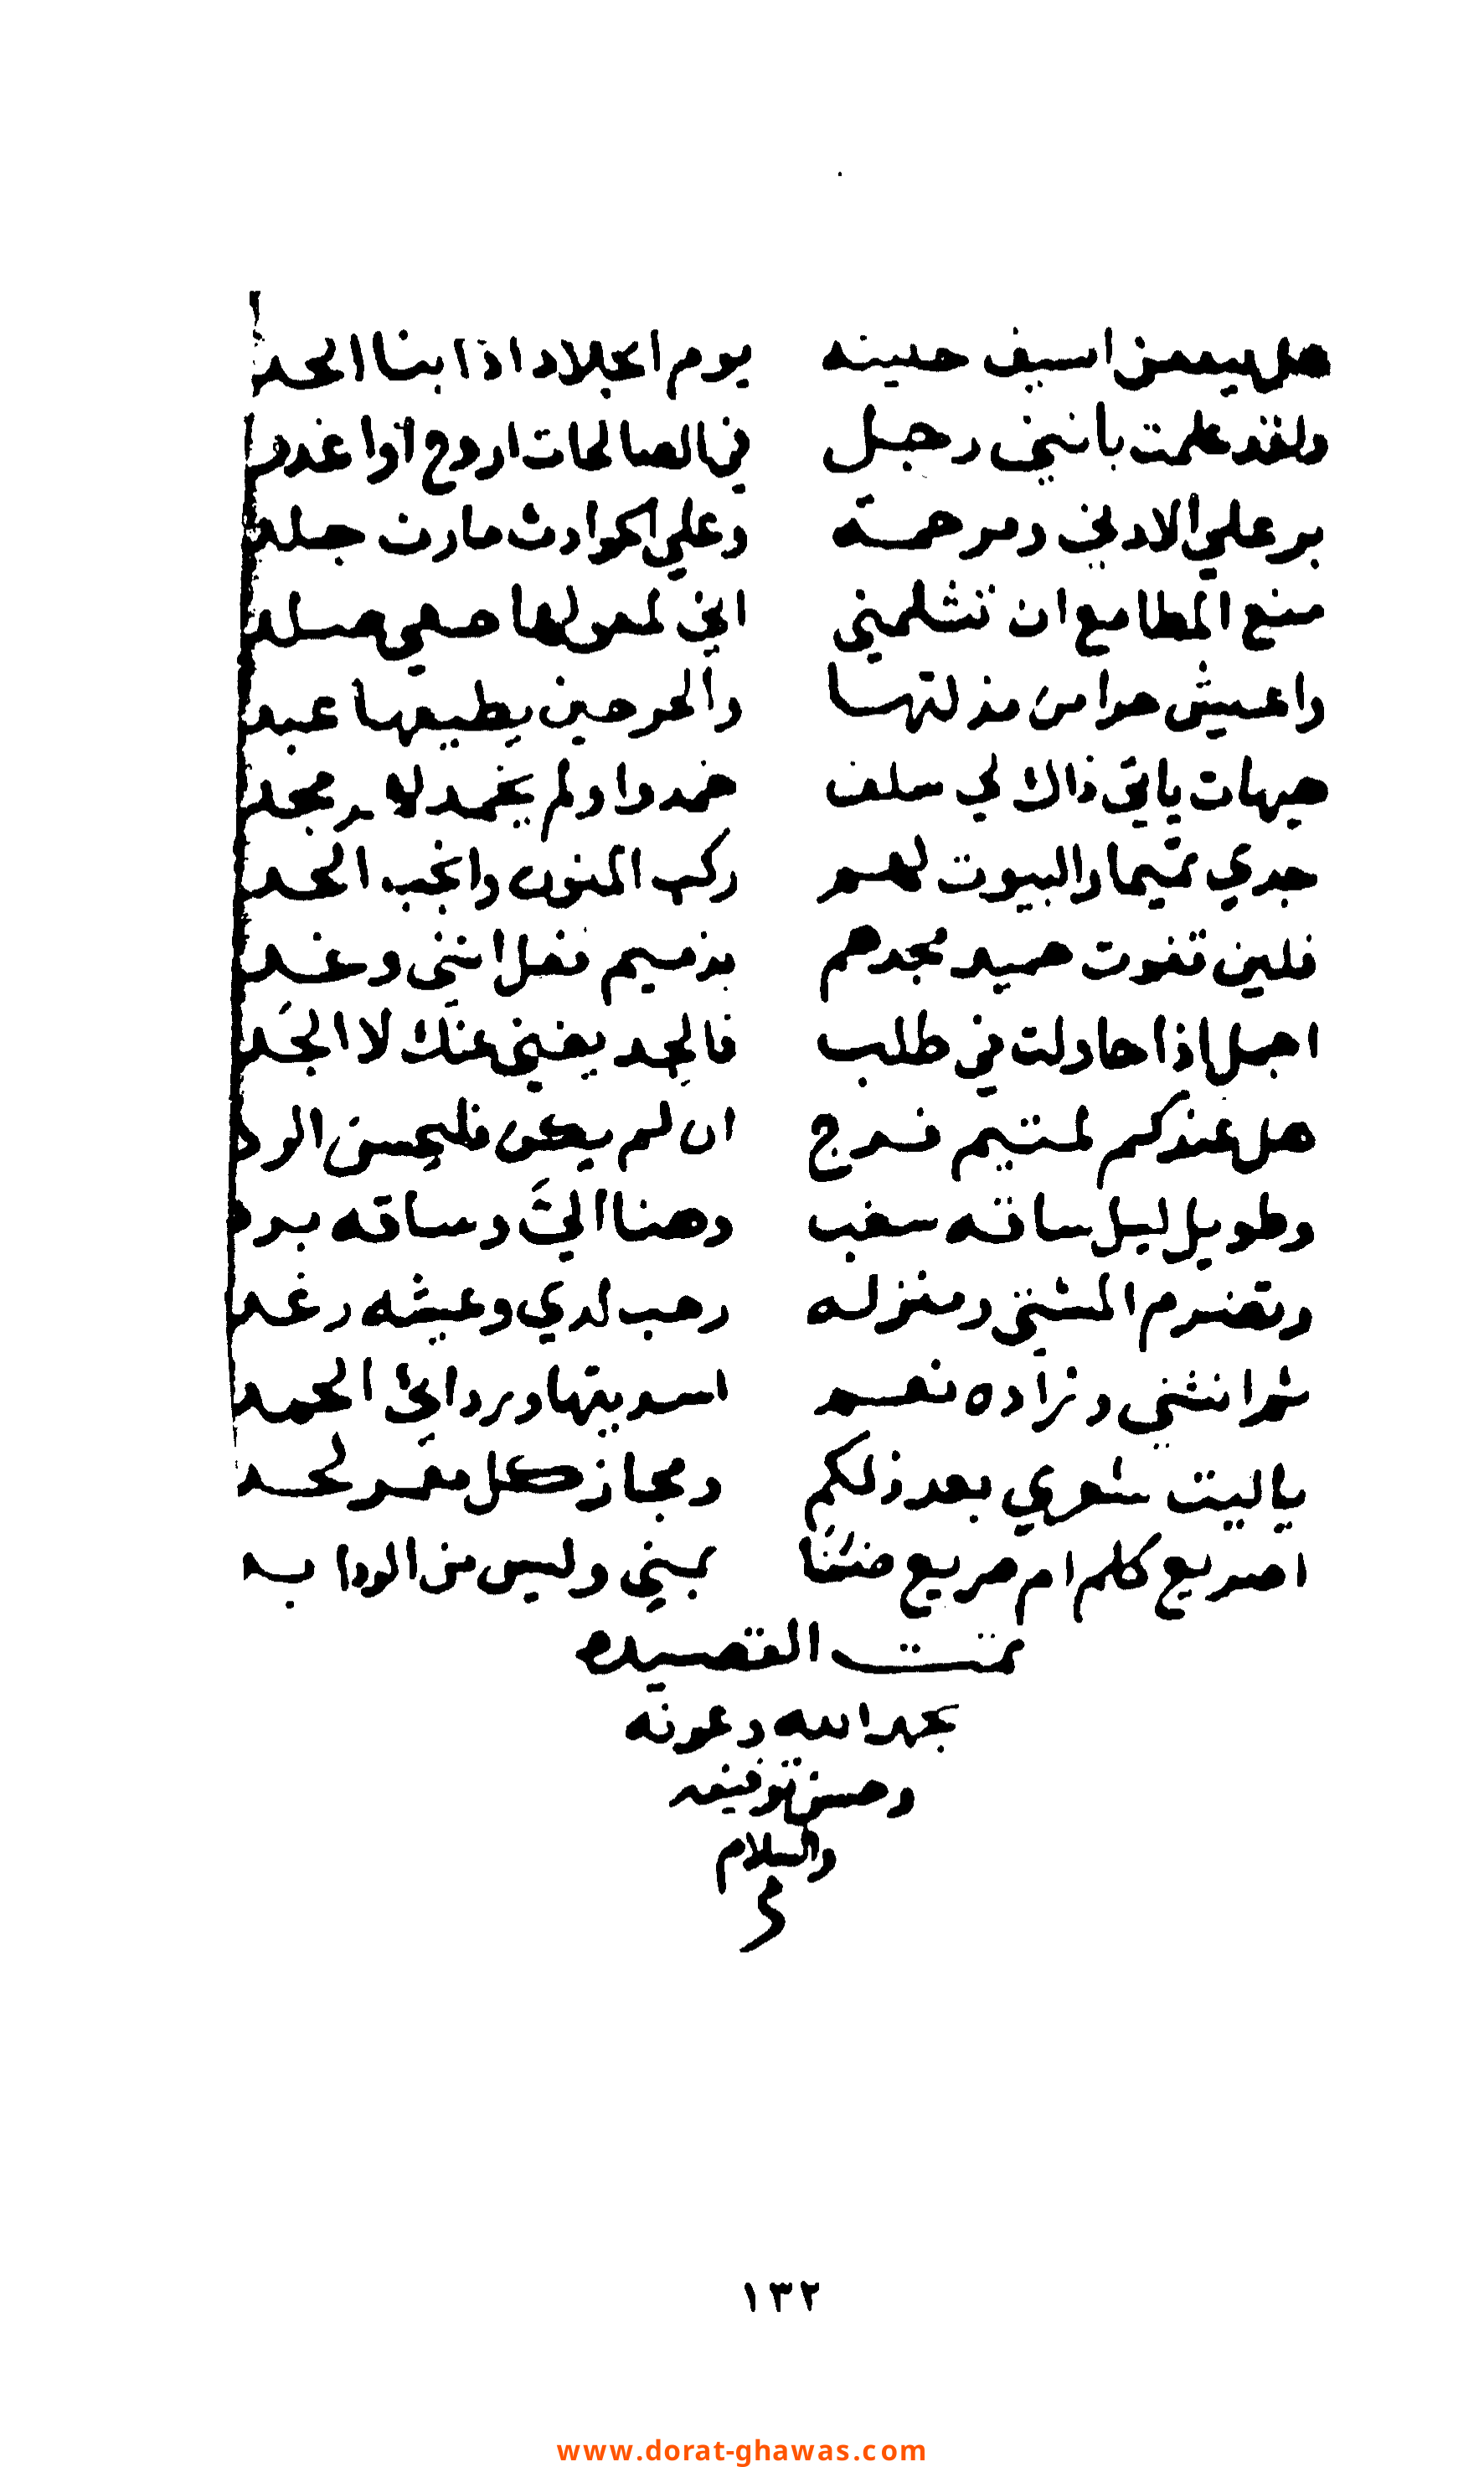 هل ينفعن اسيف حليته يوم الجلاد اذا ابنا الحد
ولقد علمت بانني رجل في الصالحات اروح أوا غدو
بر علي الادني ومرحمة وعلي الحوادث مارن جلد
منع المطامع ان تثلمني اني لمعولها صفي صلد
واعيش حرا من مذلتها والحر حين يطيعها عبد
هيهات ياتي ذاك لي سلف خمدوا ولم يخمد لهم مجد
جدي تميما والبيوت لهم زكي المنون وانجب الحد
فلين تفوت حميد مجدهم بذميم فعل انني وغد
اجمل اذا حاولت في طلب فالجد يغني عنك لا الجد
هل عندكم لمتيم فرج ان لم يكن فليحسن الرد
وطويل ليل ساقه سغب وهنا اليّ وساقه برد
وتضرم المشتي ومنزله رحب لدي وعيشه رغد
ثم انثني وزاده نعم اسديتها وردائي الحمد
ياليت شعري بعد ذلكم ومجاز كل معمر لحد
اصريع كلم ام صريع ضنًا بمني وليس من الردا بد
تمت القصيده
بحمد الله وعونه
وحسن توفيقه
والسلام
١٣٢
www.dorat-ghawas.com